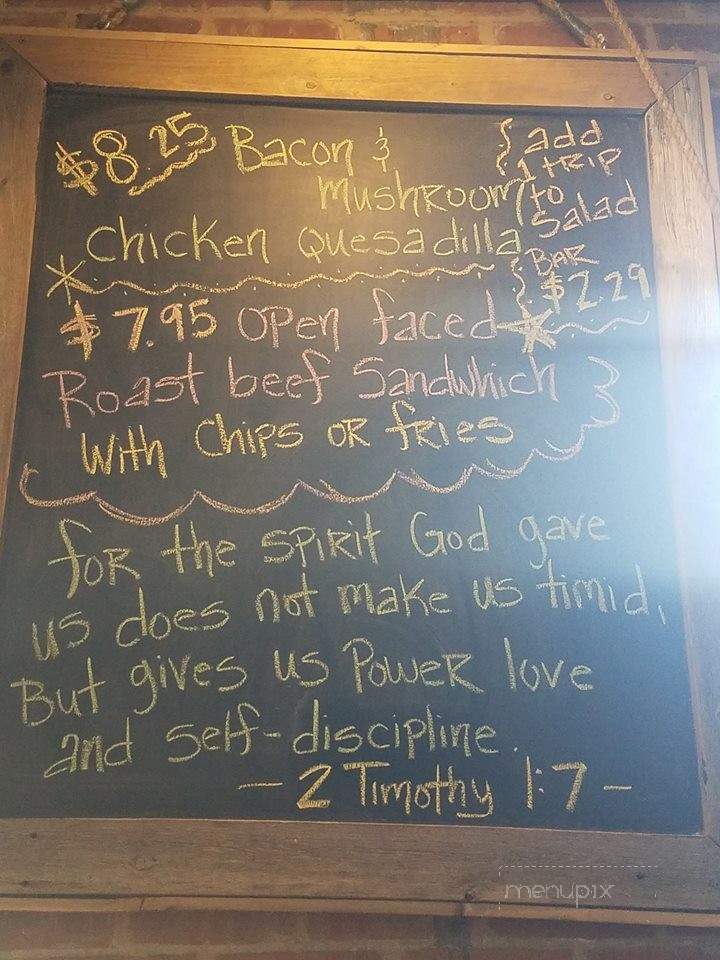 $8.25 Bacon &
Mushroom
Chicken Quesadilla
{ add
1 trip
to
Salad
Bar
$2.29
$7.95 Open faced
Roast beef Sandwhich
With Chips or fries
for the spirit God gave
us does not make us timid,
But gives us Power love
and self-discipline.
- 2 Timothy 1:7 -
menupix